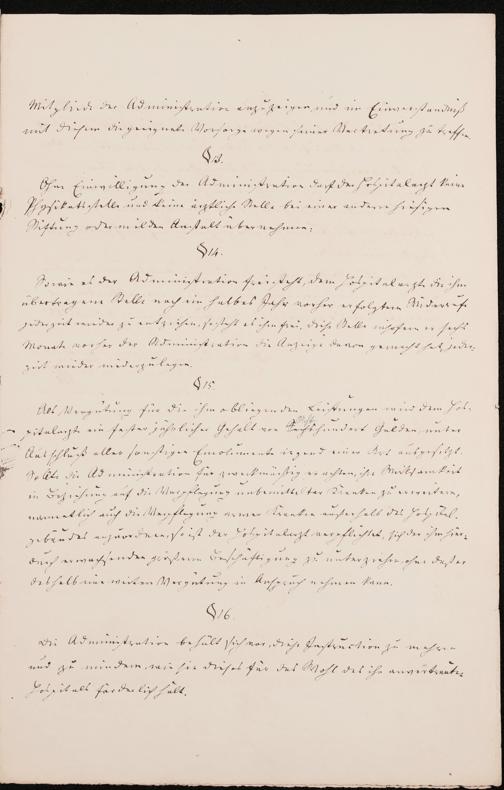 Mitgliede der Administration anzuzeigen und im Einverständniß
mit diesem die geeignete Vorsorge wegen seiner Vertretung zu treffen.
§ 13.
Ohne Einwilligung der Administration darf der Hospitalarzt keine
Physikatsstelle und keine ärztliche Stelle bei einer anderen hiesigen
Stiftung oder milden Anstalt übernehmen.
§ 14.
Sowie es der Administration freisteht, dem Hospitalarzte die ihm
übertragene Stelle nach ein halbes Jahr vorher erfolgtem Widerruf
jederzeit wieder zu entziehen, so steht es ihm frei, diese Stelle insofern er sechs
Monate vorher der Administration die Anzeige davon gemacht hat, jeder-
zeit wieder niederzulegen.
§ 15
Als Vergütung für die ihm obliegenden Leistungen wird dem Hos-
pitalarzte ein fester jährlicher Gehalt von hundert Gulden unter
Ausschluß aller sonstigen Emolumente irgend einer Art ausgesetzt.
Sollte die Administration für zweckmäßig erachten, ihre Wirksamkeit
in Beziehung auf die Verpflegung unbemittelter Kranken zu erweitern,
namentlich auch die Verpflegung armer Kranken außerhalb des Hospital-
gebäudes anzuordnen, so ist der Hospitalarzt verpflichtet, sich der ihm hier-
durch erwachsenden größeren Beschäftigung zu unterziehen, ohne daß er
deshalb eine weitere Vergütung in Anspruch nehmen kann.
§ 16.
Die Administration behält sich vor, diese Instruction zu mehren
und zu mindern, wie sie dieses für das Wohl des ihr anvertrauten
Hospitals förderlich hält.